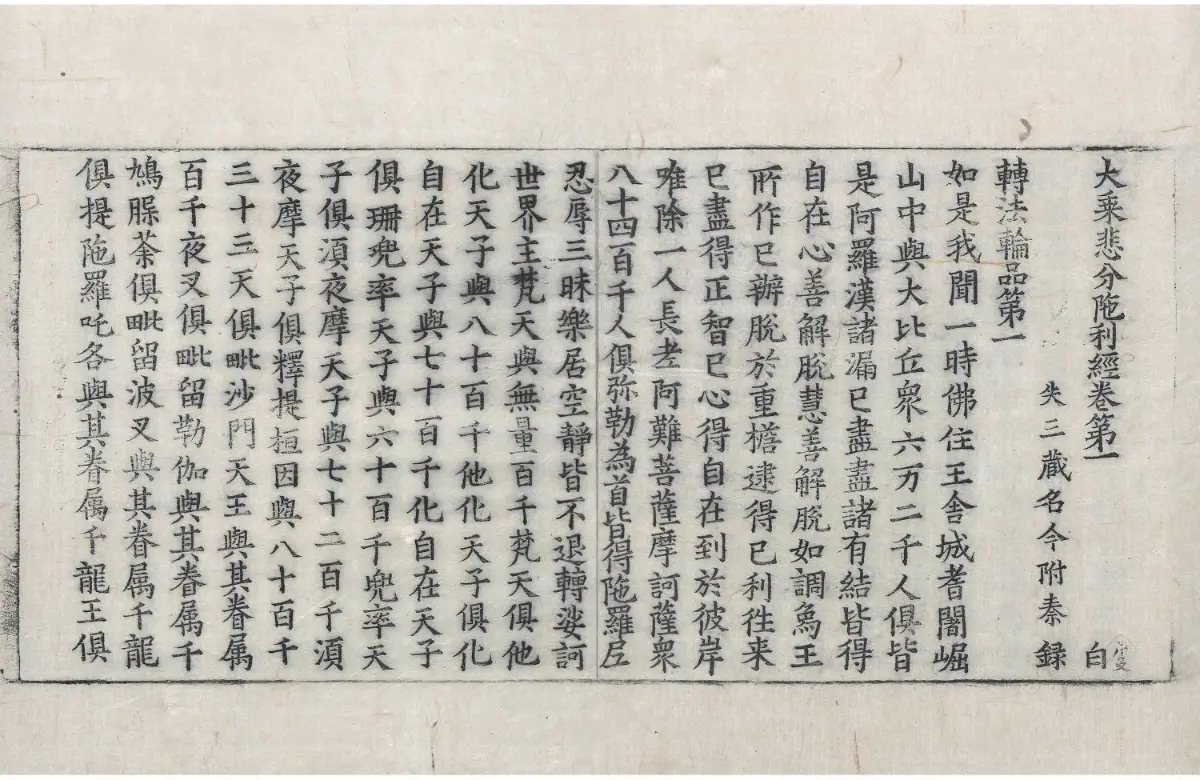 大乘悲分陁利經卷第一 白
失三藏名今附秦録
轉法輪品第一
如是我聞一時佛住王舍城耆闍崛
山中與大比丘衆六万二千人俱皆
是阿羅漢諸漏已盡盡諸有結皆得
自在心善解脫慧善解脫如調為王
所作已辦脫於重擔逮得己利徃来
已盡得正智已心得自在到於彼岸
唯除一人長老阿難菩薩摩訶薩衆
八十四百千人俱弥勒為首皆得陁羅尼
忍辱三昧樂居空靜皆不退轉娑訶
世界主梵天與無量百千梵天俱他
化天子與八十百千他化天子俱化
自在天子與七十百千化自在天子
俱珊兜率天子與六十百千兜率天
子俱湏夜摩天子與七十二百千湏
夜摩天子俱釋提桓因與八十百千
三十三天俱毗沙門天王與其眷属
百千夜叉俱毗留勒伽與其眷属千
鳩腺荼俱毗留波叉與其眷属千龍
俱提陁羅吒各與其眷属千龍王俱